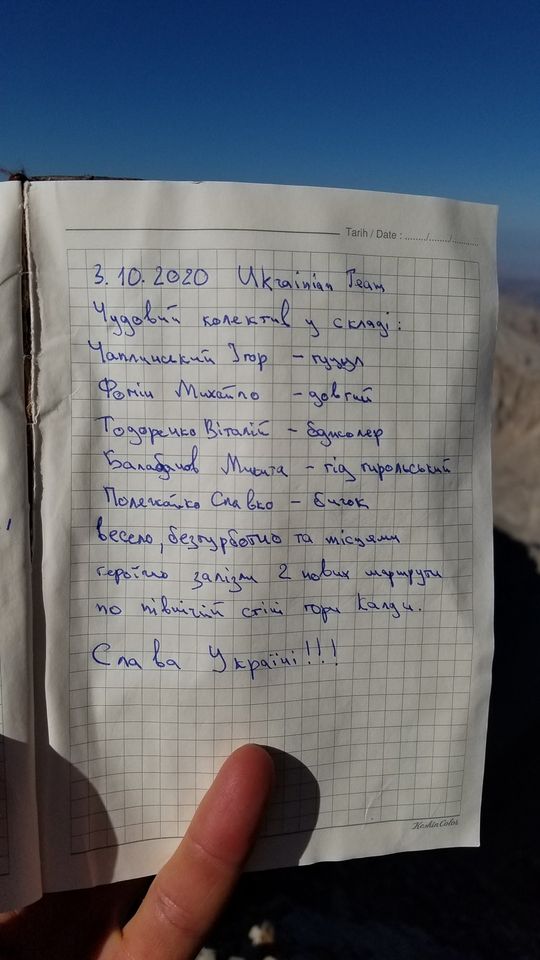 Tarih / Date : ......../......../...........
3.10.2020 Ukrainian Team
Чудовий колектив у складі:
Чаплинський Ігор - гуцул
Фомін Михайло - довгий
Тодоренко Віталій - бджолер
Балабанов Микита - гід тирольський
Полежайко Славко - бичок
весело, безтурботно та місцями
героїчно залізли 2 нових маршрути
по північній стіні гори Калди.
Слава Україні!!!
KeskinColor